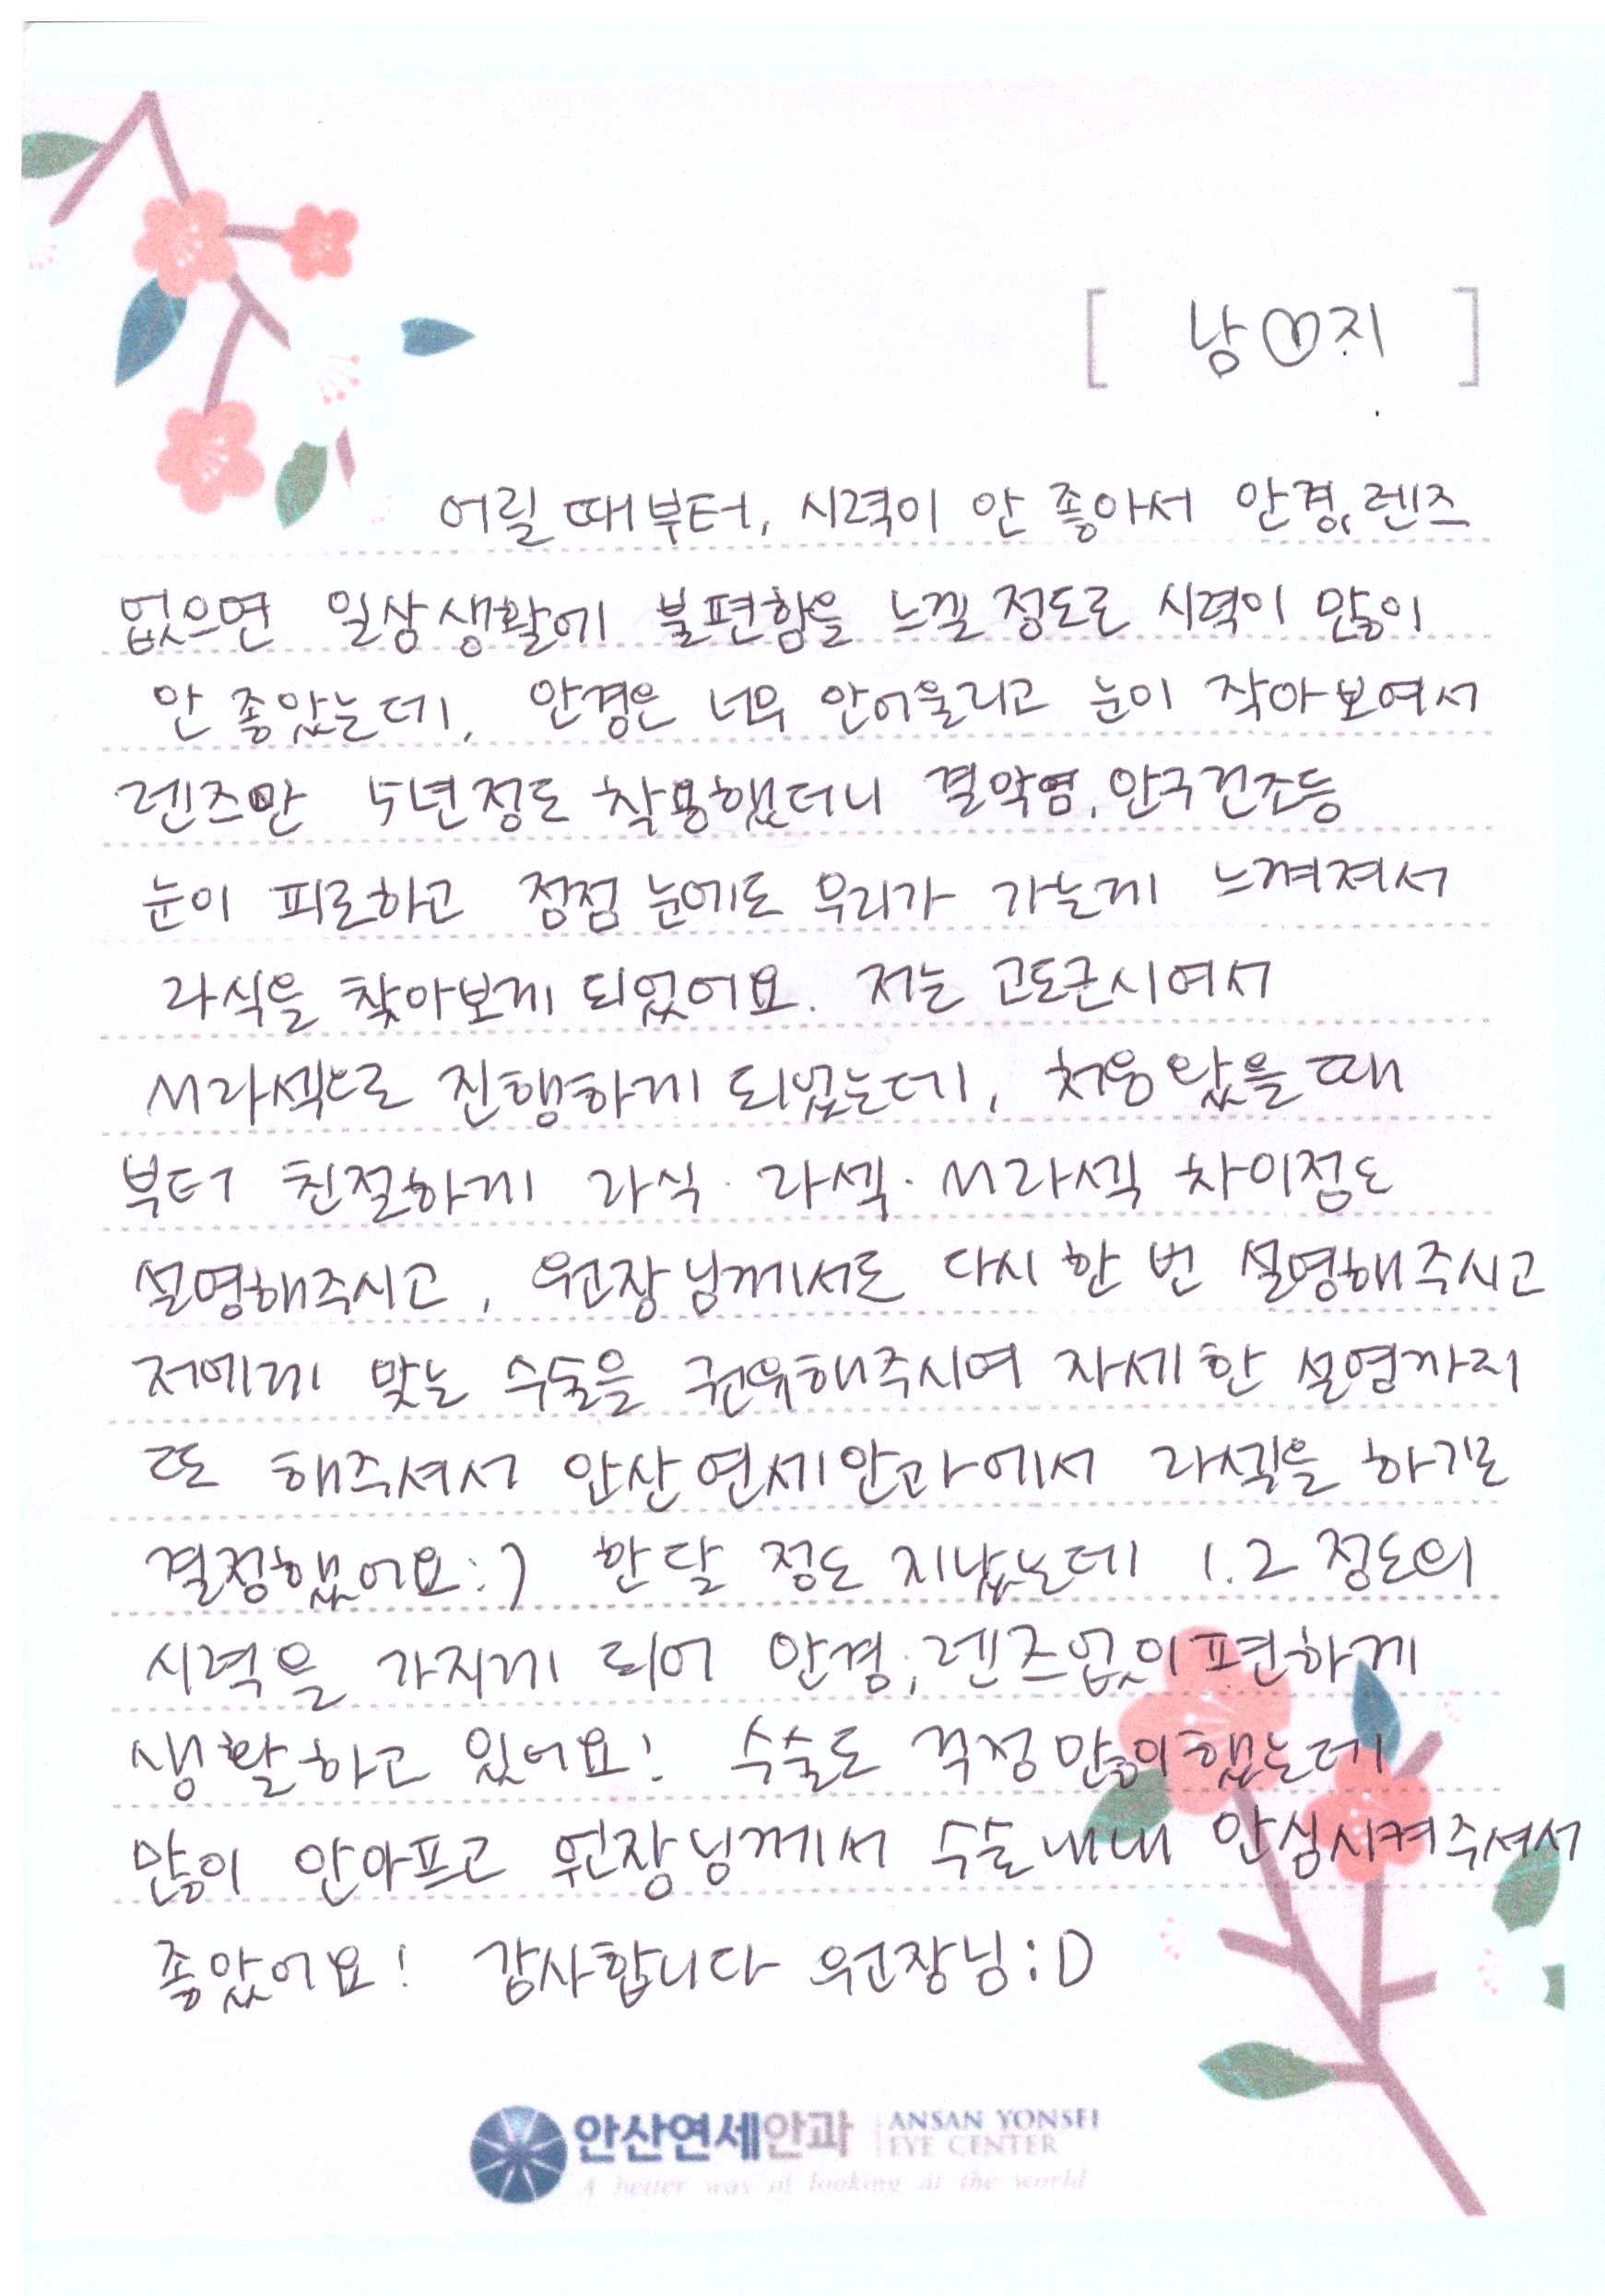 [ 남♡지 ]
어릴 때부터, 시력이 안 좋아서 안경, 렌즈
없으면 일상생활에 불편함을 느낄 정도로 시력이 많이
안 좋았는데, 안경은 너무 안어울리고 눈이 작아보여서
렌즈만 5년정도 착용했더니 결막염, 안구건조등
눈이 피로하고 점점 눈에도 무리가 가는게 느껴져서
라식을 찾아보게 되었어요. 저는 고도근시여서
M라섹으로 진행하게 되었는데, 처음 왔을 때
부터 친절하게 라식·라섹·M라섹 차이점도
설명해주시고, 원장님께서도 다시 한 번 설명해주시고
저에게 맞는 수술을 권유해주시며 자세한 설명까지
또 해주셔서 안산연세안과에서 라섹을 하기로
결정했어요:) 한달 정도 지났는데 1.2 정도의
시력을 가지게 되어 안경, 렌즈없이 편하게
생활하고 있어요! 수술도 걱정 많이했는데
많이 안아프고 원장님께서 수술내내 안심시켜주셔서
좋았어요! 감사합니다 원장님:D
안산연세안과 ANSAN YONSEI
EYE CENTER
A better way of looking at the world